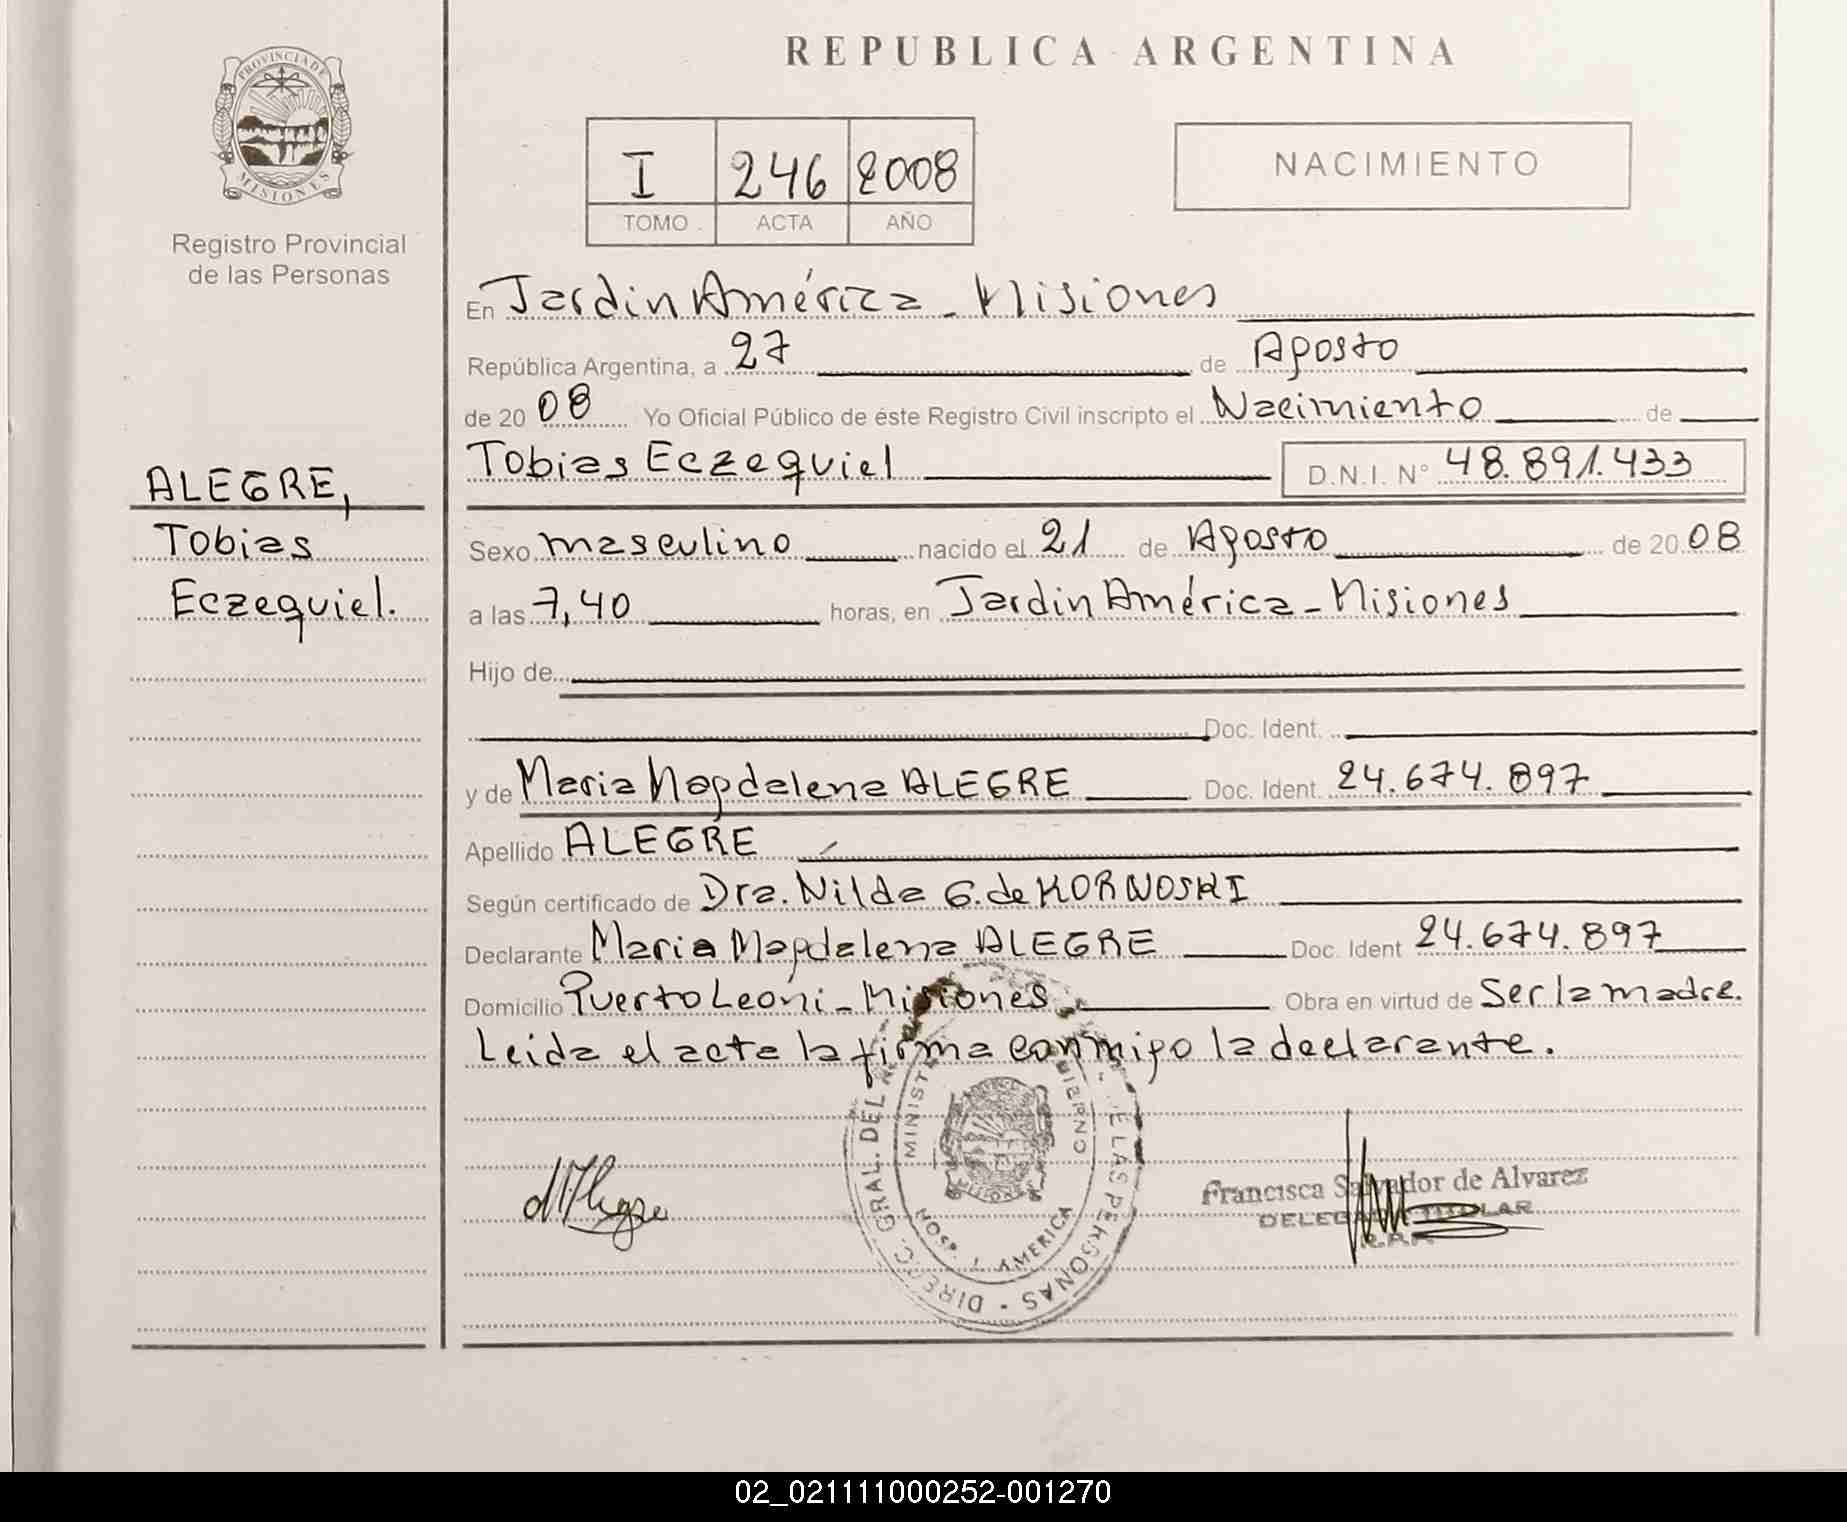 REPUBLICA ARGENTINA
PROVINCIA DE MISIONES
Registro Provincial
de las Personas
I 246 2008
TOMO ACTA AÑO
NACIMIENTO
En Jardin América - Misiones
República Argentina, a 27 de Agosto
de 20 08 Yo Oficial Público de éste Registro Civil inscripto el Nacimiento de
Tobias Eczequiel D.N.I. N° 48.891.433
ALEGRE,
Tobias
Eczequiel.
Sexo masculino nacido el 21 de Agosto de 20 08
a las 7,40 horas, en Jardin América - Misiones
Hijo de
Doc. Ident.
y de Maria Magdalena ALEGRE Doc. Ident. 24.674.897
Apellido ALEGRE
Según certificado de Dra. Nilda G. de KORNOSKI
Declarante Maria Magdalena ALEGRE Doc. Ident 24.674.897
Domicilio Puerto Leoni - Misiones Obra en virtud de Ser la madre.
Leida el acta la firma conmigo la declarante.
DIRECC. GRAL. DEL ELAS PERSONAS
MINIST BIERNO
HOSP. J. AMERICA
MISIONES
Francisca Salvador de Alvarez
DELEGADA TITULAR
R.P.P.
02_021111000252-001270